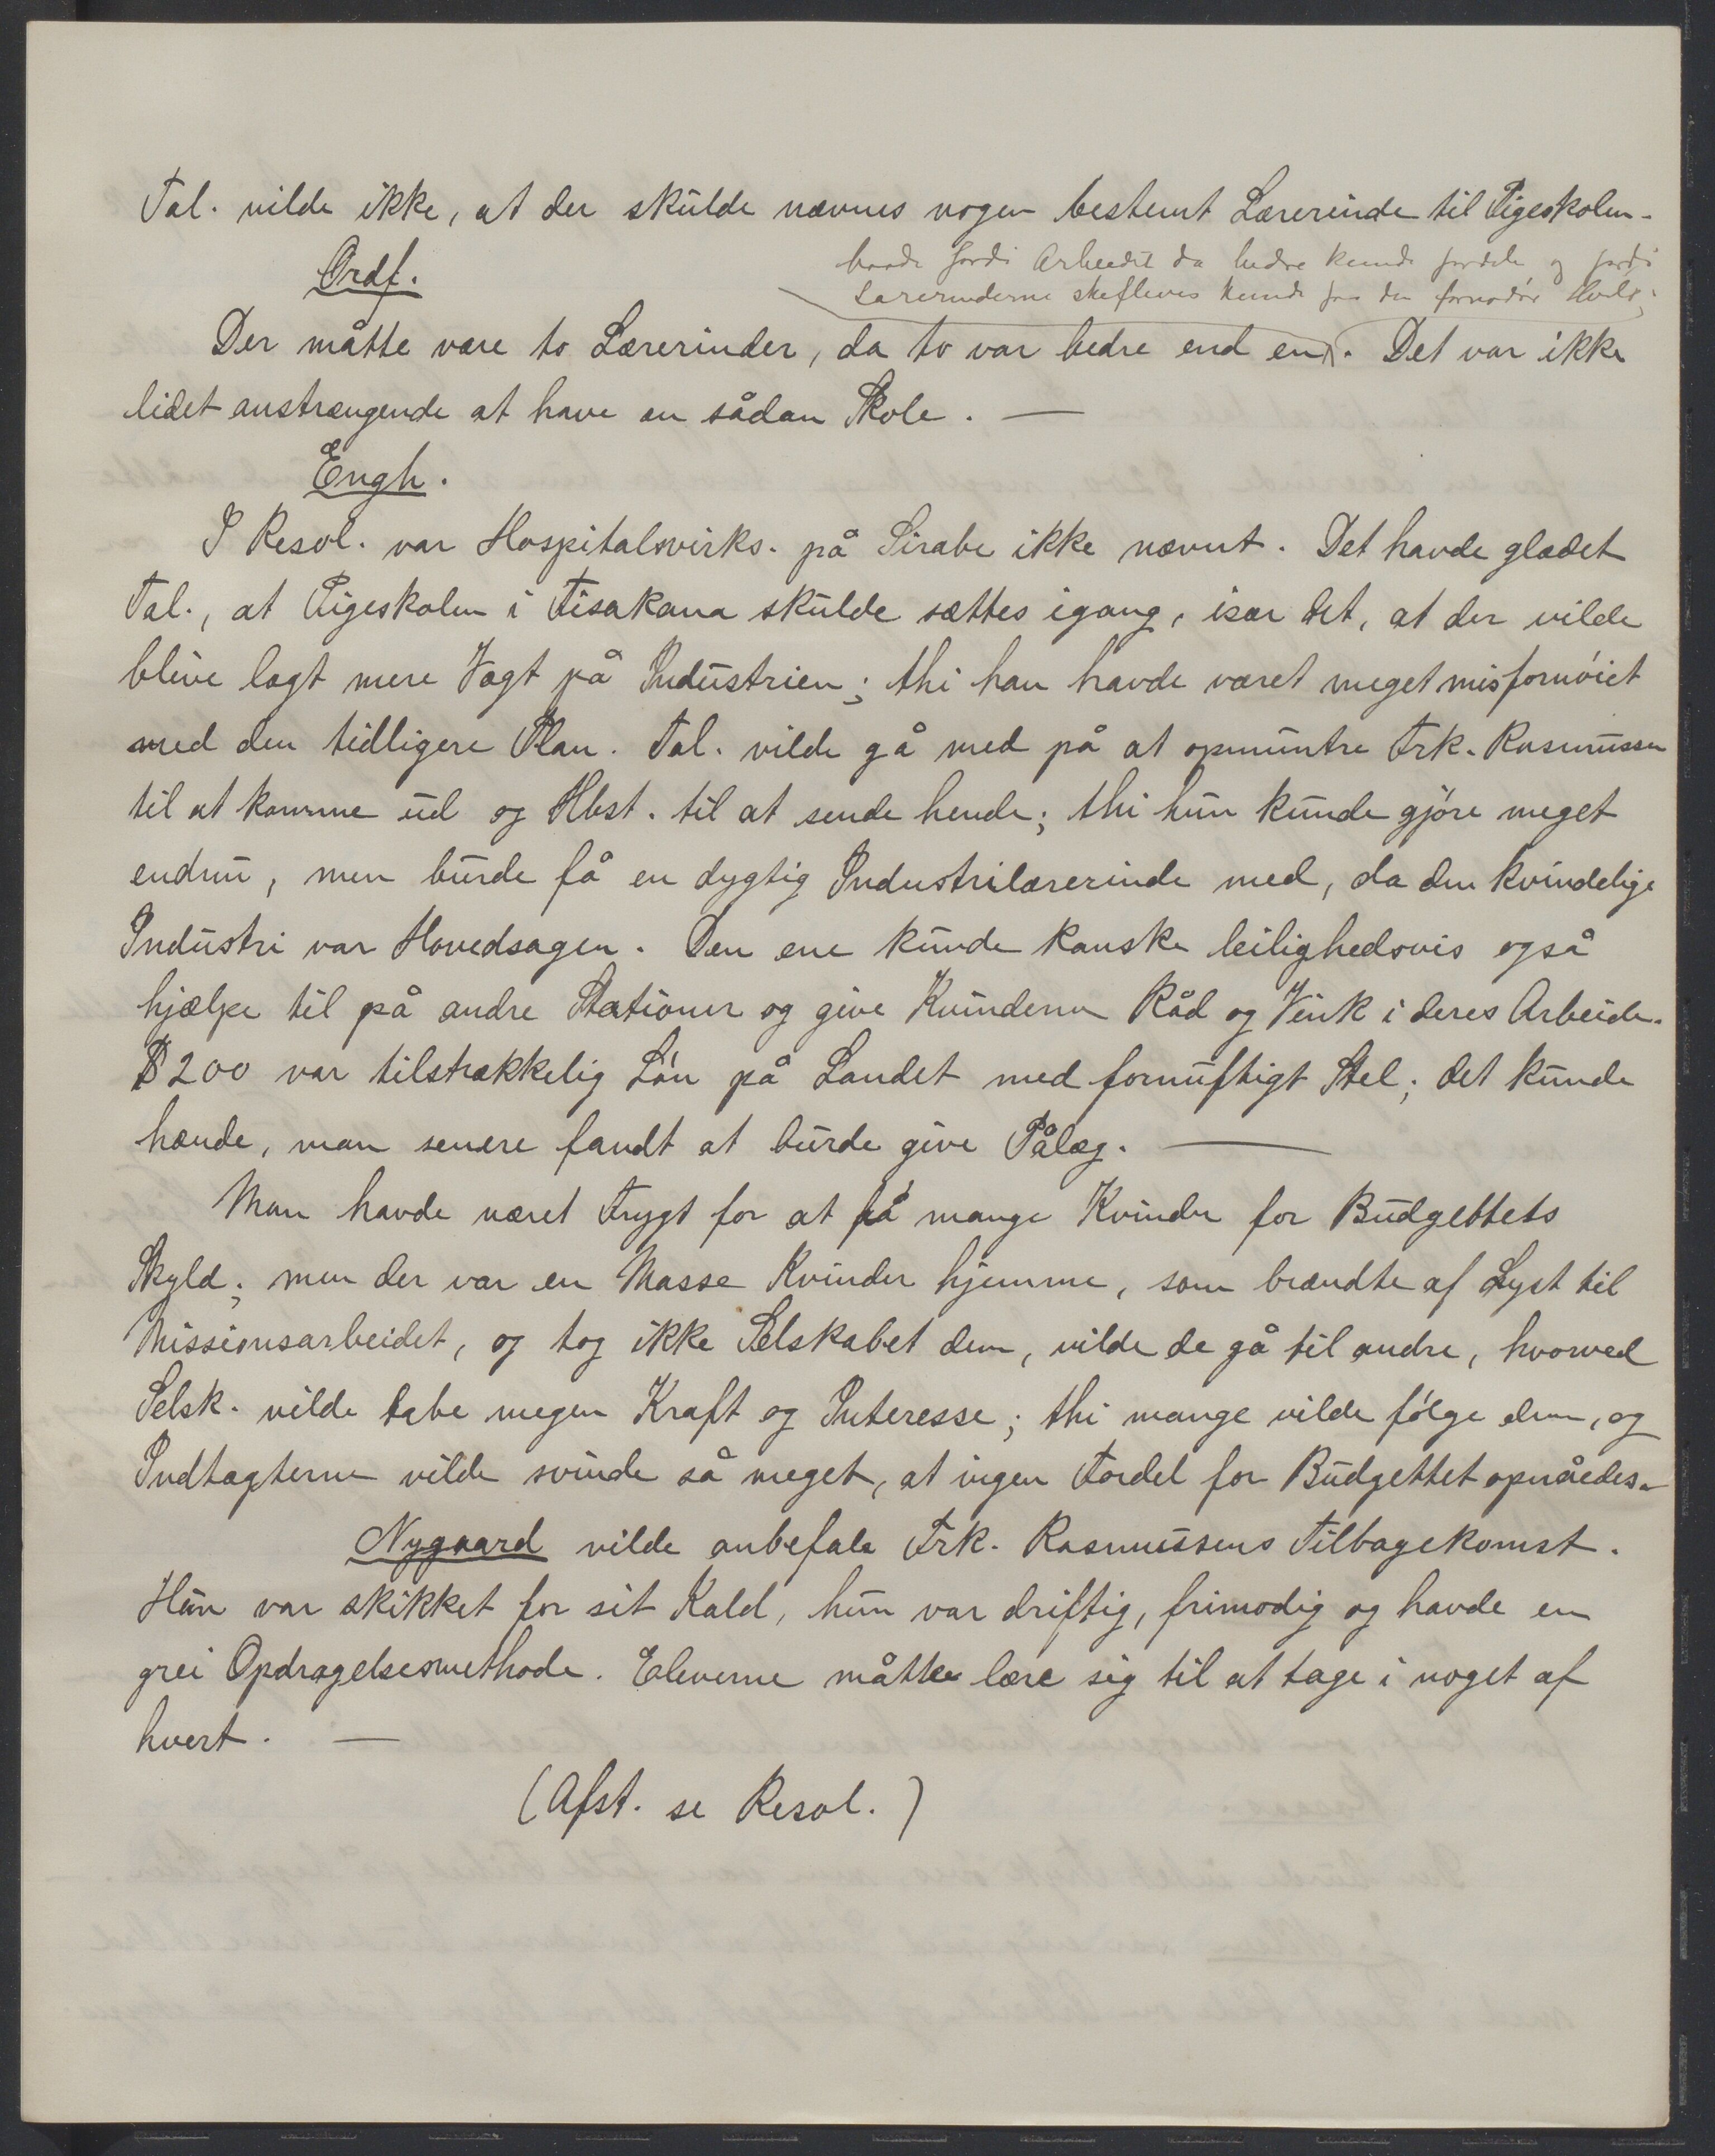 Tal. vilde ikke, at der skulde nævnes nogen bestemt Lærerinde til Pigeskolen.
Ordf.
baade fordi Arbeidet da bedre kunde fordeles og fordi
Lærerinderne skiftevis kunde faa den fornødne Hvile.
Der måtte være to Lærerinder, da to var bedre end en. Det var ikke
lidet anstrængende at have en sådan Skole. —
Engh.
I Resol. var Hospitalsvirks. på Sirabe ikke nævnt. Det havde glædet
Tal., at Pigeskolen i Fisakana skulde sættes igang, især det, at der vilde
blive lagt mere Vægt på Industrien; thi han havde været meget misfornøiet
med den tidligere Plan. Tal. vilde gå med på at opmuntre Frk. Rasmussen
til at komme ud og Hbst. til at sende hende; thi hun kunde gjöre meget
endnu, men burde få en dygtig Industrilærerinde med, da den kvindelige
Industri var Hovedsagen. Den ene kunde kanske leilighedsvis også
hjælpe til på andre Stationer og give Kvinderne Råd og Vink i deres Arbeide.
$200 var tilstrækkelig Lön på Landet med fornuftigt Stel; det kunde
hænde, man senere fandt at burde give Pålæg. —
Man havde været frygt for at få mange Kvinder for Budgettets
Skyld; men der var en Masse Kvinder hjemme, som brændte af Lyst til
Missionsarbeidet, og tog ikke Selskabet dem, vilde de gå til andre, hvorved
Selsk. vilde tabe megen Kraft og Interesse; thi mange vilde fölge dem, og
Indtægterne vilde svinde så meget, at ingen Fordel for Budgettet opnåedes.
Nygaard vilde anbefale Frk. Rasmussens Tilbagekomst.
Hun var skikket for sit Kald, hun var driftig, frimodig og havde en
grei Opdragelsesmethode. Eleverne måtte lære sig til at tage i noget af
hvert. —
(Afst. se Resol.)